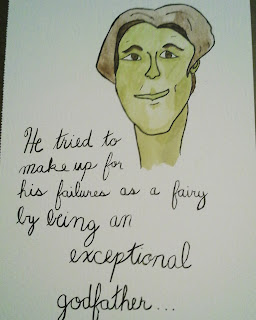 He tried to
make up for
his failures as a fairy
by being an
exceptional
godfather...